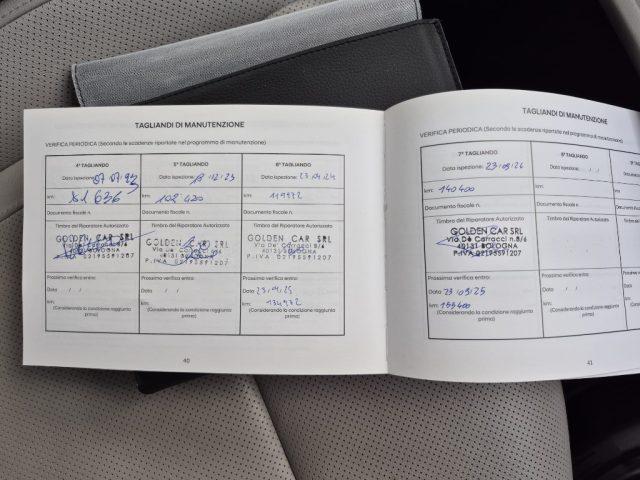 TAGLIANDI DI MANUTENZIONE
VERIFICA PERIODICA (Secondo le scadenze riportate nel programma di manutenzione)
4° TAGLIANDO
Data ispezione: 07.07.23
km: 81 636
Documento fiscale n.
Timbro del Riparatore Autorizzato
GOLDEN CAR SRL
BOLOGNA
02193591207
Prossima verifica entro:
Data / /
km:
(Considerando la condizione raggiunta prima)
5° TAGLIANDO
Data ispezione: 12.23
km: 102 420
Documento fiscale n.
Timbro del Riparatore Autorizzato
GOLDEN CAR SRL
Via De' Carracci n.8/6
40131 BOLOGNA
P.IVA 02193591207
Prossima verifica entro:
Data / /
km:
(Considerando la condizione raggiunta prima)
6° TAGLIANDO
Data ispezione: 23.04.24
km: 119972
Documento fiscale n.
Timbro del Riparatore Autorizzato
GOLDEN CAR SRL
Via De' Carracci n.8/6
40131 BOLOGNA
P.IVA 02193591207
Prossima verifica entro:
Data 23.04.25
km: 134972
(Considerando la condizione raggiunta prima)
40
TAGLIANDI DI MANUTENZIONE
VERIFICA PERIODICA (Secondo le scadenze riportate nel programma di manutenzione)
7° TAGLIANDO
Data ispezione: 23.09.24
km: 140400
Documento fiscale n.
Timbro del Riparatore Autorizzato
GOLDEN CAR SRL
Via De Carracci n.8/6
40131 BOLOGNA
P.IVA 02193591207
Prossima verifica entro:
Data 23.09.25
km: 155400
(Considerando la condizione raggiunta prima)
Data ispezione: / /
km:
Documento fiscale n.
Timbro del Riparatore
Prossima verifica entro:
Data / /
km:
(Considerando la condizione
41